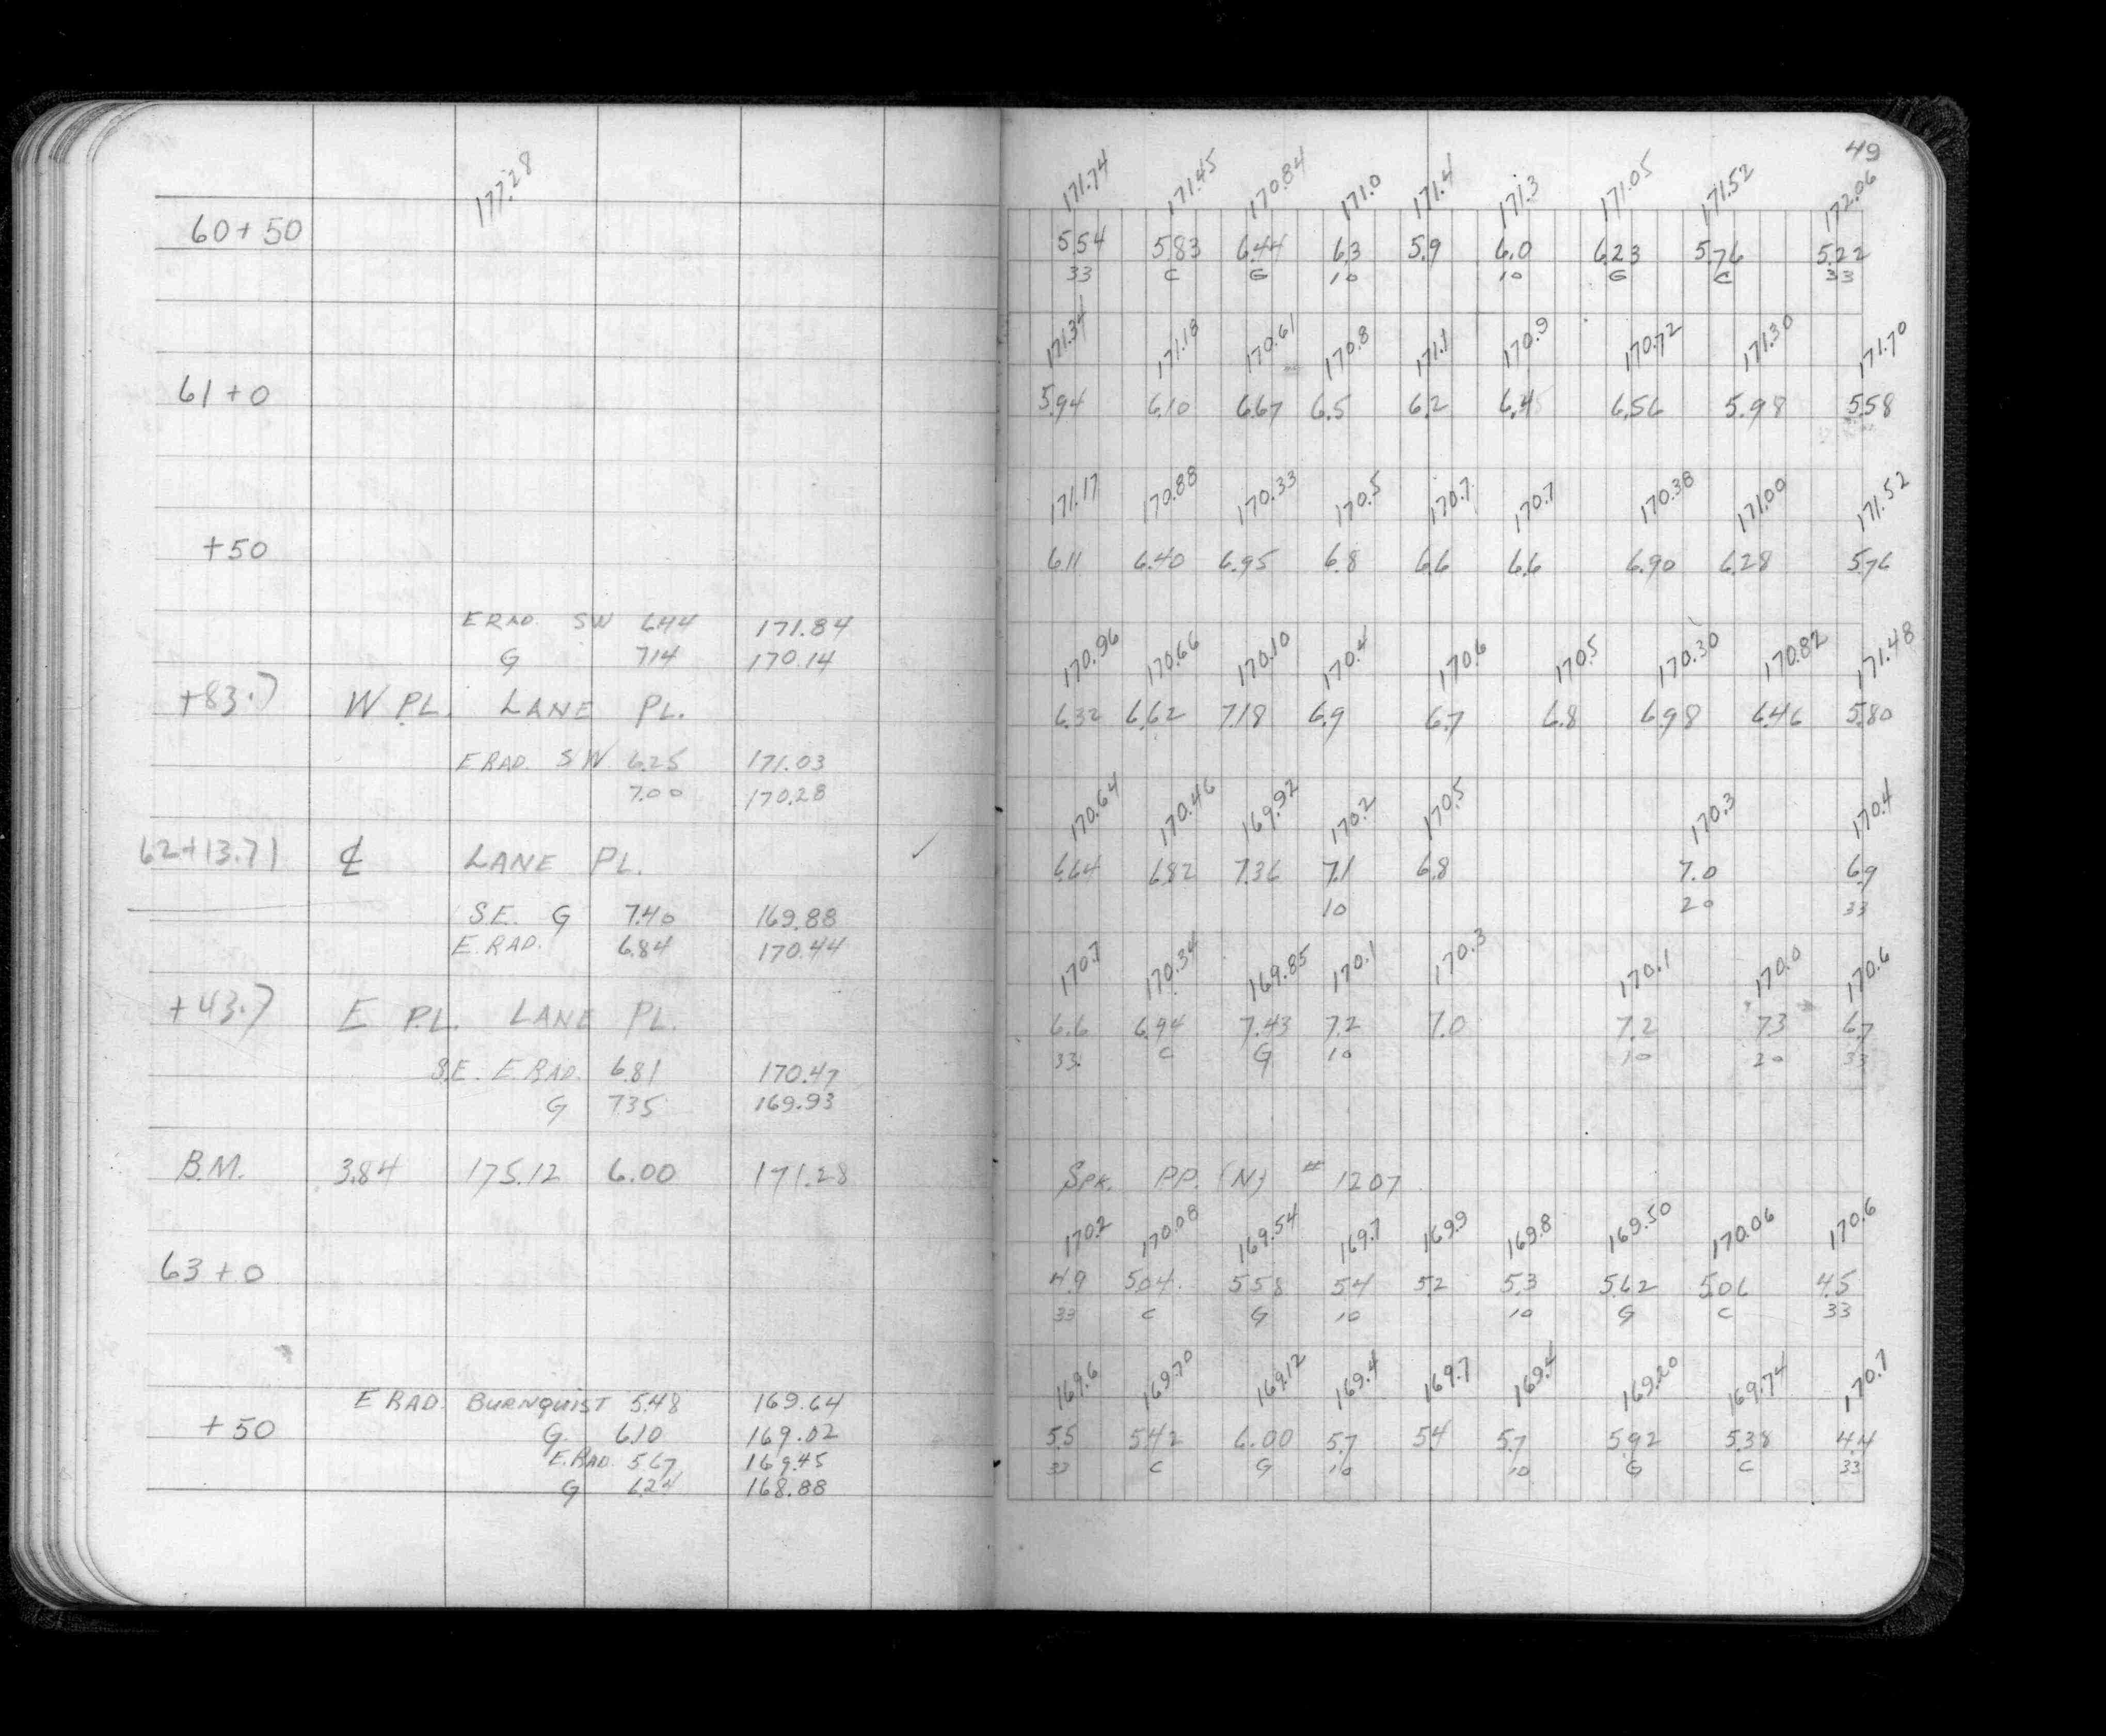 49
177.28
171.74 171.45 170.84 171.0 171.4 171.3 171.05 171.52 172.06
60+50 5.54 5.83 6.44 6.3 5.9 6.0 6.23 5.76 5.22
33 C G 10 10 G C 33
171.34 171.18 170.61 170.8 171.1 170.9 170.72 171.30 171.70
61+0 5.94 6.10 6.67 6.5 6.2 6.4 6.56 5.98 5.58
171.17 170.88 170.33 170.5 170.7 170.7 170.38 171.00 171.52
+50 6.11 6.40 6.95 6.8 6.6 6.6 6.90 6.28 5.76
E RAD. SW 171.84
G 7.14 170.14
170.96 170.66 170.10 170.4 170.6 170.5 170.30 170.82 171.48
+83.7 W P.L. LANE PL. 6.32 6.62 7.18 6.9 6.7 6.8 6.98 6.46 5.80
E RAD. SW 6.25 171.03
7.00 170.28
170.64 170.46 169.92 170.2 170.5 170.3 170.4
62+13.71 ℄ LANE PL. ✓ 6.64 6.82 7.36 7.1 6.8 7.0 6.9
10 20 33
S.E. G 7.40 169.88
E. RAD. 6.84 170.44
170.7 170.34 169.85 170.1 170.3 170.1 170.0 170.6
+43.7 E P.L. LANE PL. 6.6 6.94 7.43 7.2 7.0 7.2 7.3 6.7
33 C G 10 10 20 33
S.E. E. RAD. 6.81 170.47
G 7.35 169.93
B.M. 3.84 175.12 6.00 171.28 SPK. PP. (N) # 1207
170.2 170.08 169.54 169.7 169.9 169.8 169.50 170.06 170.6
63+0 4.9 5.04 5.58 5.4 5.2 5.3 5.62 5.06 4.5
33 C G 10 10 G C 33
169.6 169.70 169.12 169.4 169.7 169.4 169.20 169.74 170.7
E RAD. BURNQUIST 5.48 169.64
+50 G. 6.10 169.02 5.5 5.42 6.00 5.7 5.4 5.7 5.92 5.38 4.4
33 C G 10 10 G C 33
E. RAD. 5.67 169.45
G 6.24 168.88